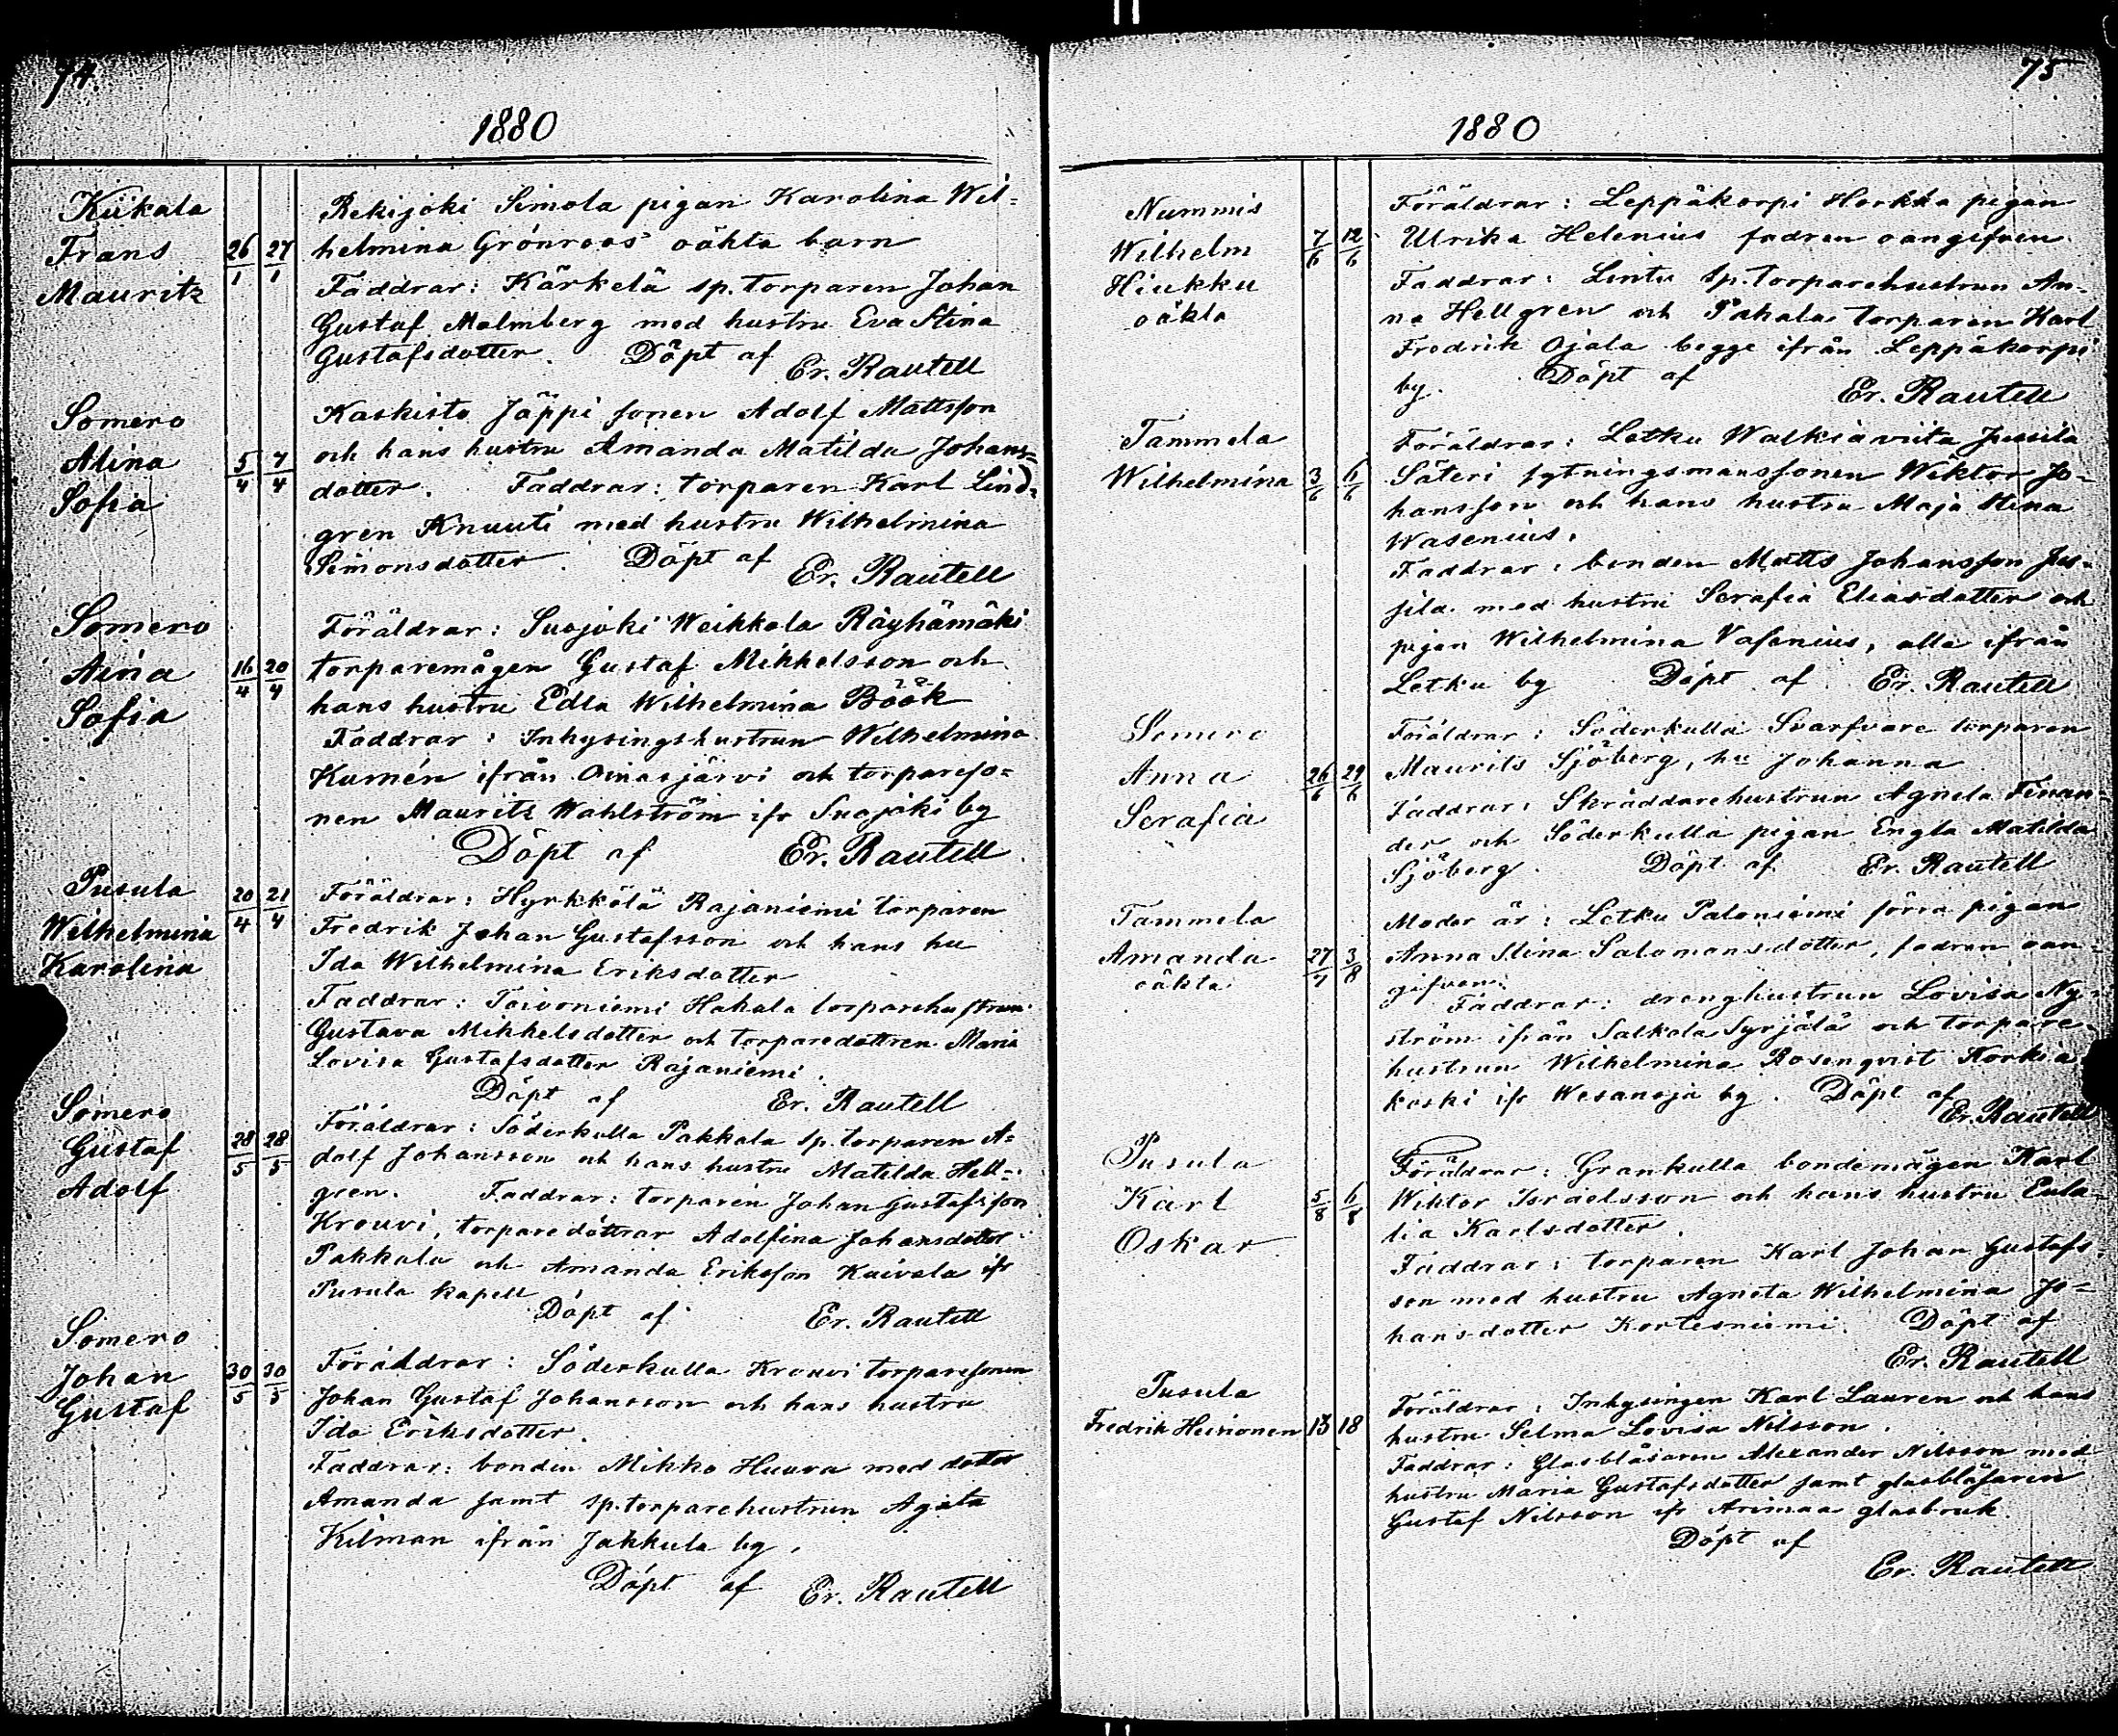 74.
1880
Kiikala
Frans
Mauritz
26/1 27/1
Rekijoki Simola pigan Karolina Wil=
helmina Grönroos oäkta barn
Faddrar: Kärkelä sp. torparen Johan
Gustaf Malmberg med hustru Eva Stina
Gustafsdotter. Döpt af
Er. Rautell
Somero
Alina
Sofia
5/4 7/4
Kaskisto Jäppi sonen Adolf Mattsson
och hans hustru Amanda Matilda Johans=
dotter. Faddrar: torparen Karl Lind=
gren Knuuti med hustru Wilhelmina
Simonsdotter. Döpt af
Er. Rautell
Somero
Aina
Sofia
16/4 20/4
Föräldrar: Suojoki Weikkola Räyhämäki
torparemågen Gustaf Mikkelsson och
hans hustru Edla Wilhelmina Böök
Faddrar: Inhysingshustrun Wilhelmina
Kumén ifrån Oinasjärvi och torpareso=
nen Mauritz Wahlström ifr Suojoki by
Döpt af Er. Rautell
Pusula
Wilhelmina
Karolina
20/4 21/4
Föräldrar: Hyrkkölä Rajaniemi torparen
Fredrik Johan Gustafsson och hans hu
Ida Wilhelmina Eriksdotter
Faddrar: Toivoniemi Hakala torparehustrun
Gustava Mikkelsdotter och torparedottren Maria
Lovisa Gustafsdotter Rajaniemi.
Döpt af Er. Rautell
Somero
Gustaf
Adolf
28/5 28/5
Föräldrar: Söderkulla Pakkala sp. torparen A=
dolf Johansson och hans hustru Matilda Hell=
gren. Faddrar: torparen Johan Gustafsson
Krouvi, torparedöttrar Adolfina Johansdotter
Pakkala och Amanda Eriksson Kaivola ifr
Pusula kapell
Döpt af Er. Rautell
Somero
Johan
Gustaf
30/5 30/5
Föräldrar: Söderkulla Krouvi torparesonen
Johan Gustaf Johansson och hans hustru
Ida Eriksdotter.
Faddrar: bonden Mikko Huura med dotter
Amanda samt sp. torparehustrun Agata
Kilman ifrån Jakkula by.
Döpt af Er. Rautell
75
1880
Nummis
Wilhelm
Hiukku
oäkta
7/6 12/6
Föräldrar: Leppäkorpi Horkka pigan
Ulrika Helenius fadren oangifven.
Faddrar: Lintu sp. torparehustrun An=
na Hellgren och Pahala torparen Karl
Fredrik Ojala begge ifrån Leppäkorpi
by. Döpt af
Er. Rautell
Tammela
Wilhelmina
3/6 6/6
Föräldrar: Letku Walkiaviita Jussila
Säteri sytningsmanssonen Wiktor Jo=
hansson och hans hustru Maja Stina
Wasenius.
Faddrar: bonden Matts Johansson Jus=
sila med hustru Serafia Eliasdotter och
pigan Wilhelmina Vasenius, alla ifrån
Letku by Döpt af Er. Rautell
Somero
Anna
Serafia
26/6 29/6
Föräldrar: Söderkulla Svarfvare torparen
Maurits Sjöberg, hu Johanna
Faddrar: Skräddarehustrun Agneta Finan=
der och Söderkulla pigan Engla Matilda
Sjöberg. Döpt af Er. Rautell
Tammela
Amanda
oäkta
27/7 3/8
Moder är: Letku Paloniemi förra pigan
Anna Stina Salomonsdotter, fadren oan=
gifven.
Faddrar: drenghustrun Lovisa Ny=
ström ifrån Salkola Syrjälä och torpare=
hustrun Wilhelmina Rosenqvist Korkia
koski ifr Wesanoja by. Döpt af
Er. Rautell
Pusula
Karl
Oskar
5/8 6/8
Föräldrar: Grankulla bondemågen Karl
Wiktor Israelsson och hans hustru Eula=
lia Karlsdotter.
Faddrar: torparen Karl Johan Gustafs=
son med hustru Agneta Wilhelmina Jo=
hansdotter Kortesniemi. Döpt af
Er. Rautell
Pusula
Fredrik Heinonen 13 18
Föräldrar: Inhysingen Karl Lauren och hans
hustru Selma Lovisa Nilsson.
Faddrar: Glasblåsaren Alexander Nilsson med
hustru Maria Gustafsdotter samt glasblåsaren
Gustaf Nilsson ifr Arimaa glasbruk.
Döpt af
Er. Rautell